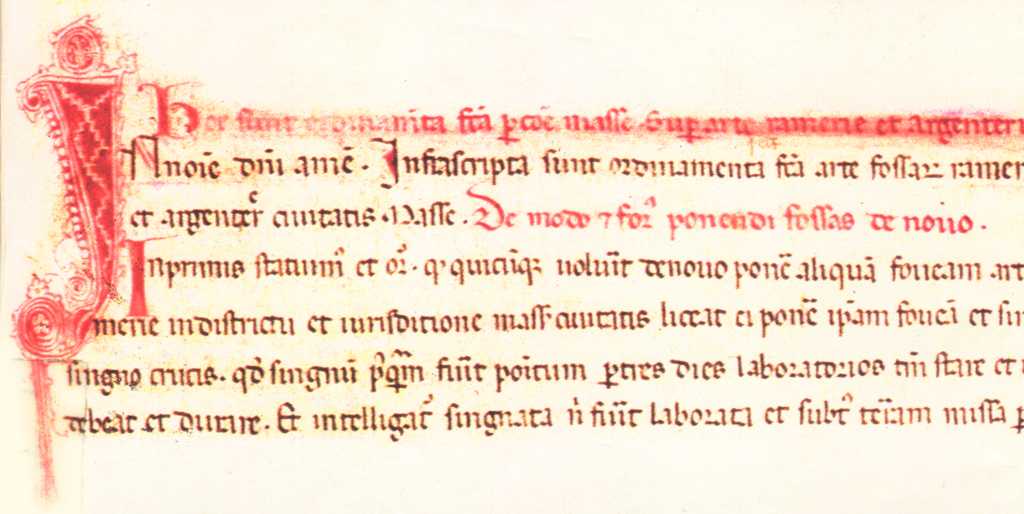 Hec sunt ordinam̅ta fc̅a ꝑ cōe masse. Suꝑ arte ramerie et argenteri
In noīe dn̅i ame̅. Infrascripta sunt ordinamenta fc̅a arte fossarꝝ ramer
et argenter̅ ciuitatis Masse. De modo ⁊ for᷒ ponendi fossas de nouo.
Inprimis statuim᷒ et or᷒. ꝙ quicu̅qꝫ uolu̅it denouo pone̅ aliqua̅ foueam art
merie indistrictu et iurisditione mass̅ ciuitatis liceat ei pone̅ ip̅am foue̅a et sin
singno crucis. qd̅ singnu̅ p᷒q̅m fiu̅t poi̅tum ꝑtres dies laboratorios tm̅ stare et
debeat et durare. Et intelligat᷒ singnata n̅ fiu̅t laborata et subt᷒ te̅ram missa ꝑ